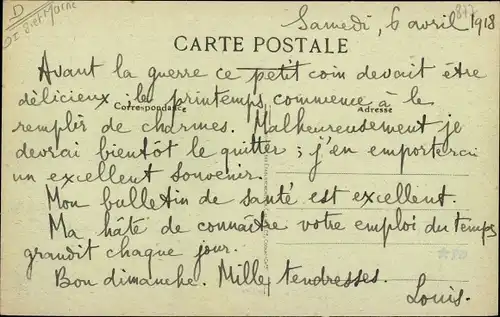 D
DI Set Marne
877
Samedi, 6 avril 1918
CARTE POSTALE
Avant la guerre ce petit coin devait être
délicieux, le printemps commence à le
Correspondance Adresse
remplir de charmes. Malheureusement je
devrai bientôt le quitter ; j'en emporterai
un excellent souvenir.
Mon bulletin de santé est excellent.
Ma hâte de connaître votre emploi du temps
grandit chaque jour.
Bon dimanche. Mille tendresses.
Louis.